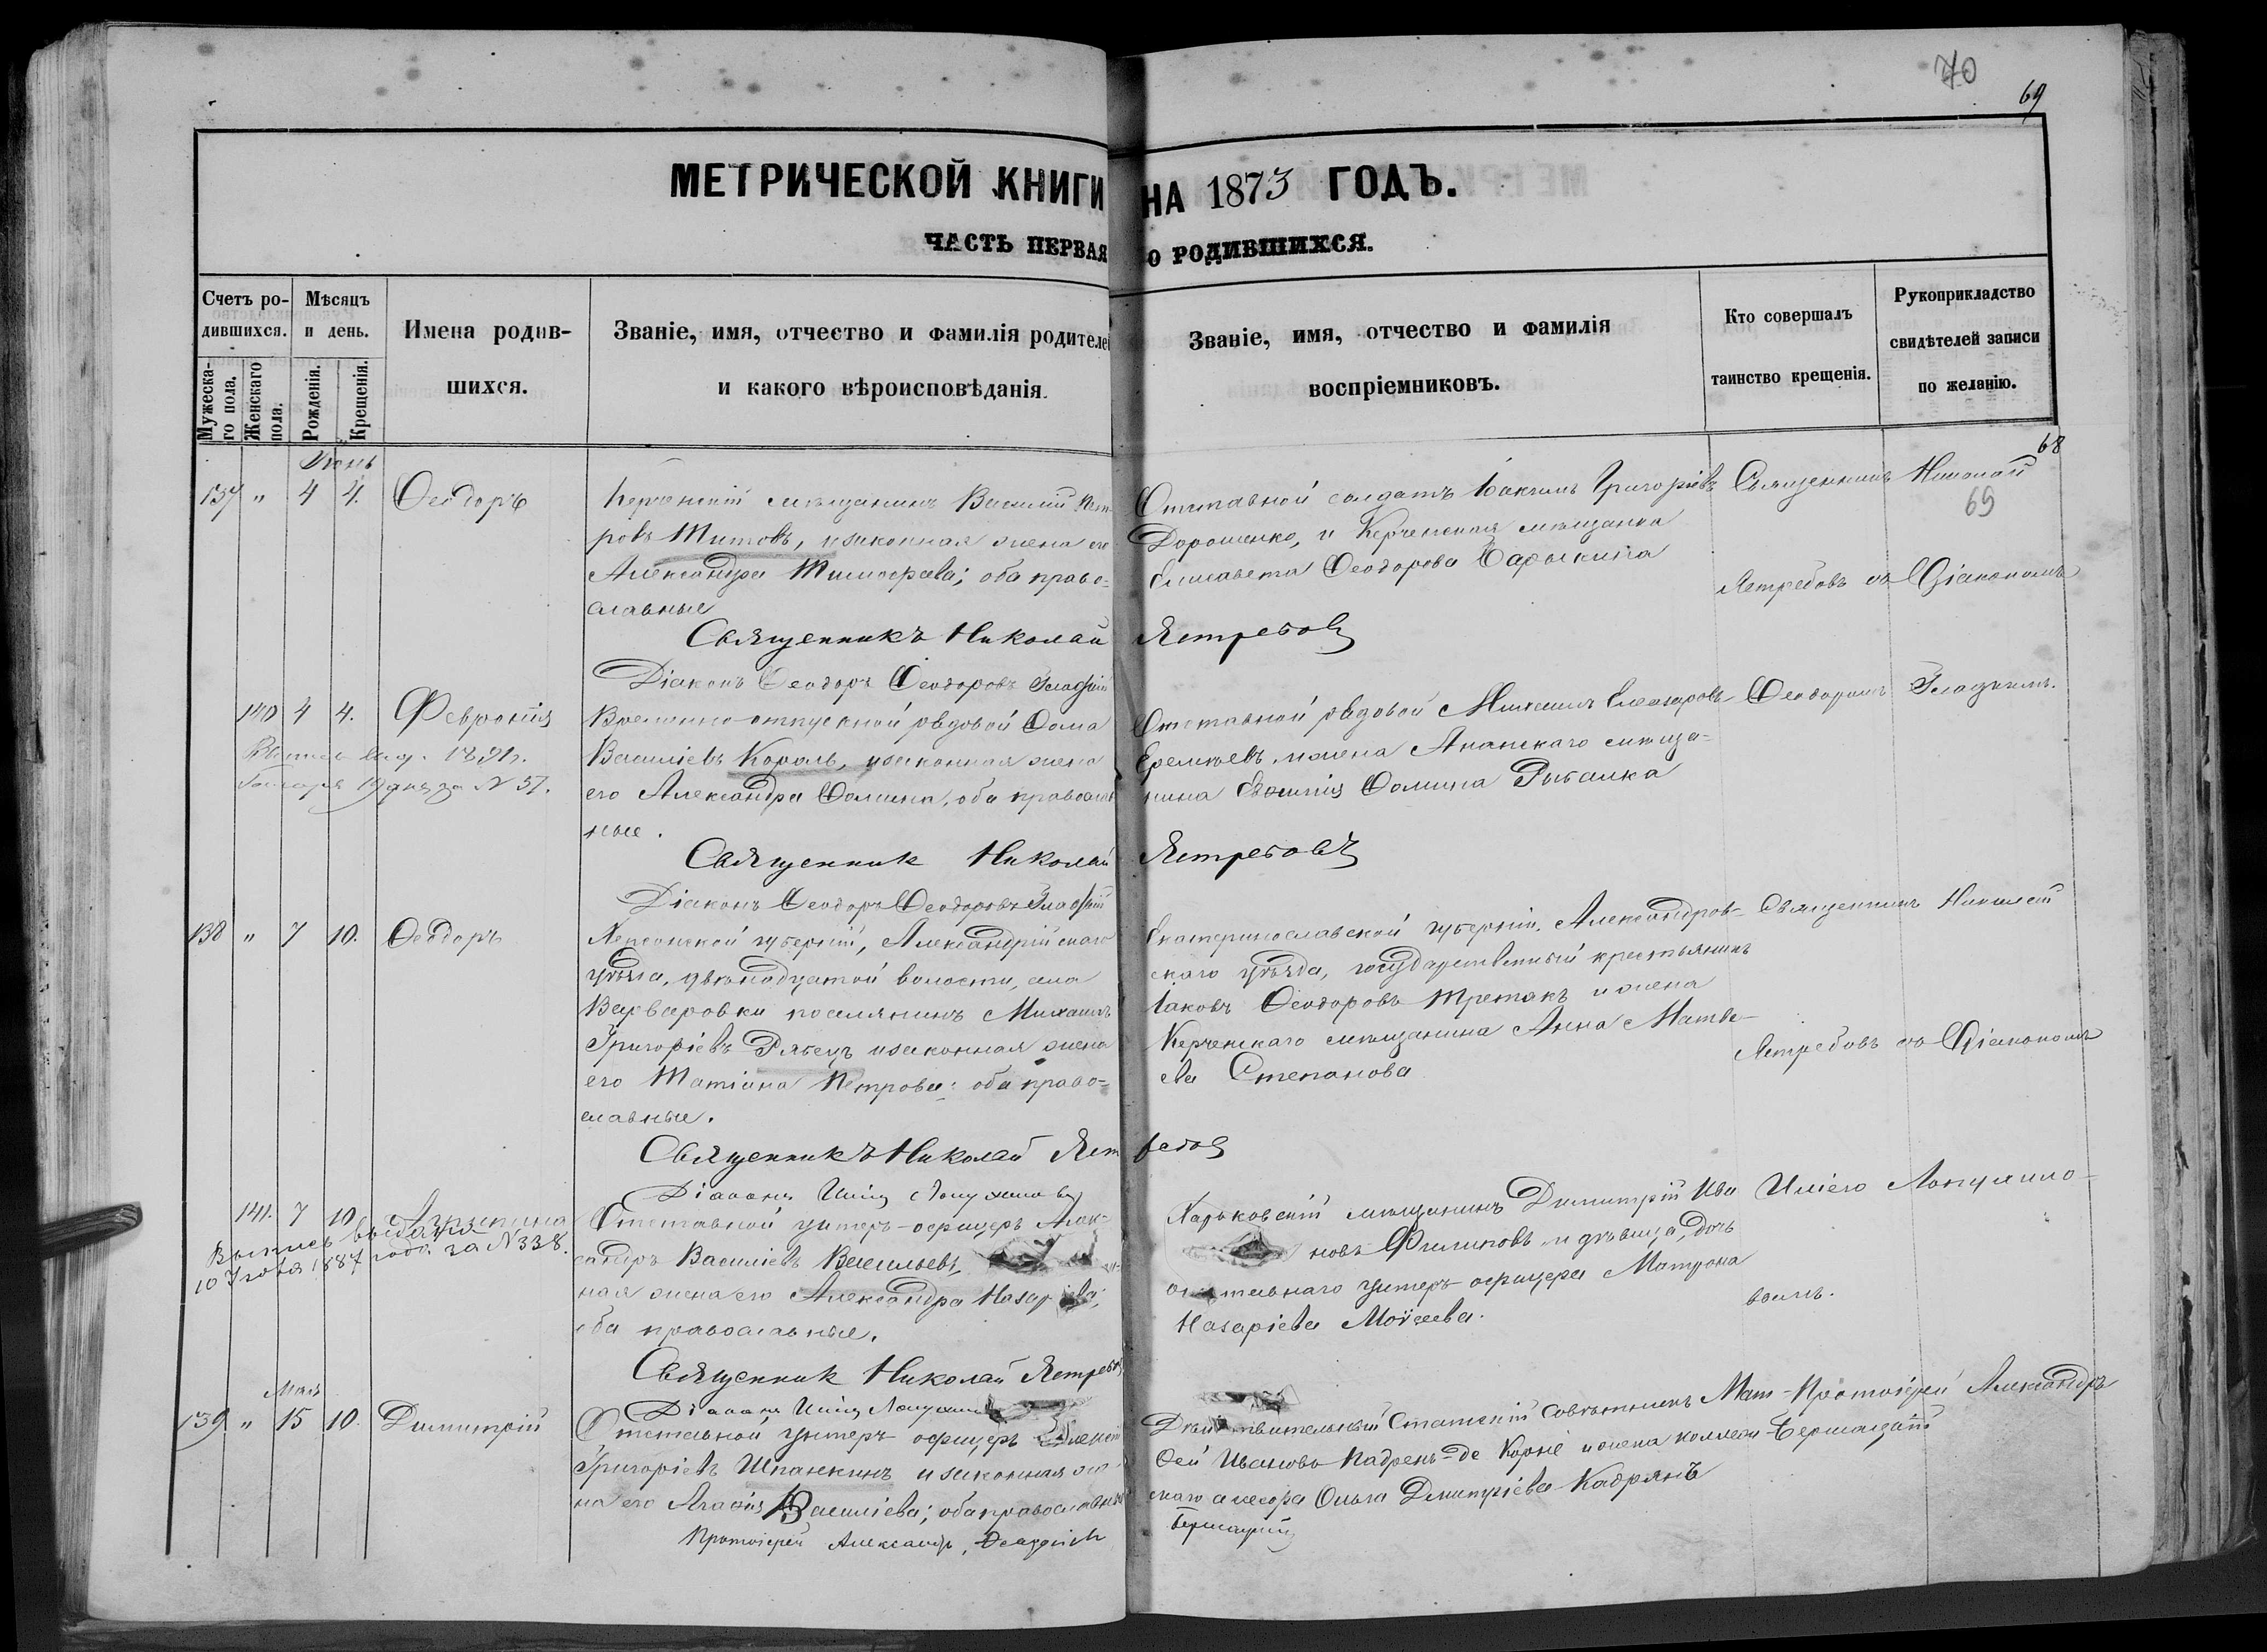 70
69
МЕТРИЧЕСКОЙ КНИГИ НА 1873 ГОДЪ.
ЧАСТЬ ПЕРВАЯ О РОДИВШИХСЯ.
Счетъ ро-
дившихся.
Мужеска-
го пола.
Женскаго
пола.
Мѣсяцъ
и день.
Рожденія.
Крещенія.
Имена родив-
шихся.
Званіе, имя, отчество и фамилія родителей
и какого вѣроисповѣданія.
Званіе, имя, отчество и фамилія
воспріемниковъ.
Кто совершалъ
таинство крещенія.
Рукоприкладство
свидѣтелей записи
по желанію.
68
69
Іюнь
137 " 4 4. Ѳеодоръ
Керченскій мѣщанинъ Василій Пет-
ровъ Титовъ, и законная жена его
Александра Тимоѳеева; оба право-
славные
Отставной солдатъ Іоакимъ Григорьевъ
Дорошенко, и Керченская мѣщанка
Елисавета Ѳеодорова
Священникъ Николай
Ястребовъ съ Діакономъ
Священникъ Николай Ястребовъ
Діаконъ Ѳеодоръ Ѳеодоровъ Гладкій
140 4 4. Февронія
Выпись выд. 1891 г.
Января 19 дня за N 57.
Временно-отпускной рядовой Ѳома
Василіевъ Король, и законная жена
его Александра Ѳомина, оба православ-
ные.
Отставной рядовой Михаилъ Елеазаровъ
Еремѣевъ, и жена Анапскаго мѣща-
нина Евфимія Ѳомина Рыбалка
Ѳеодоромъ Гладкимъ.
Священникъ Николай Ястребовъ
Діаконъ Ѳеодоръ Ѳеодоровъ Гладкій
138 " 7 10. Ѳеодоръ
Херсонской губерніи, Александрійскаго
уѣзда, двѣнадцатой волости, села
Варваровки поселянинъ Михаилъ
Григоріевъ Рябецъ и законная жена
его Татіана Петрова: оба право-
славные.
Екатеринославской губерніи, Александров-
скаго уѣзда, государственный крестьянинъ
Іаковъ Ѳеодоровъ Третякъ и жена
Керченскаго мѣщанина Анна Матве-
ева Степанова
Священникъ Николай
Ястребовъ съ Діакономъ
Священникъ Николай Ястребовъ
Діаконъ Илія Лопушиновъ
141. 7 10 Агрипина
Выпись выдана
10 Іюля 1887 года за N 338.
Отставной унтеръ-офицеръ Алек-
сандръ Василіевъ Васильевъ,
ная жена его Александра Назарьева;
оба православные.
Харьковскій мѣщанинъ Димитрій Ива
новъ Филиповъ и дѣвица, дочь
отставнаго унтеръ-офицера Матрона
Назаріева Моисеева.
Иліею Лопушино-
вымъ.
Священникъ Николай Ястребовъ
Діаконъ Илія Лопушиновъ
Май
139 " 15 10. Димитрій
Отставной унтеръ-офицеръ Алексій
Григоріевъ Шпанкинъ и законная же
на его Агафія Василіева; оба православны
Дѣйствительный Статскій совѣтникъ Мат-
ѳей Ивановъ Падренъ-де Карне и жена коллеж-
скаго асесора Ольга Димитріева Кадрянъ
Протоіерей Александръ
Бершадскій
Протоіерей Александръ